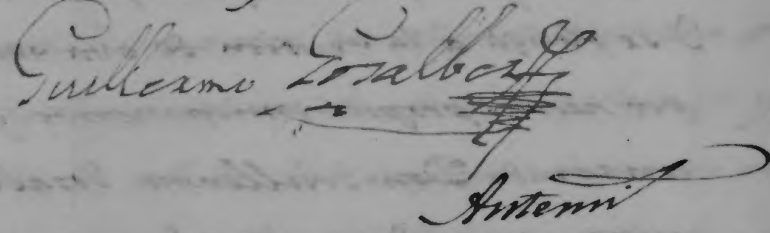 Guillermo Gosalbez
Antemi